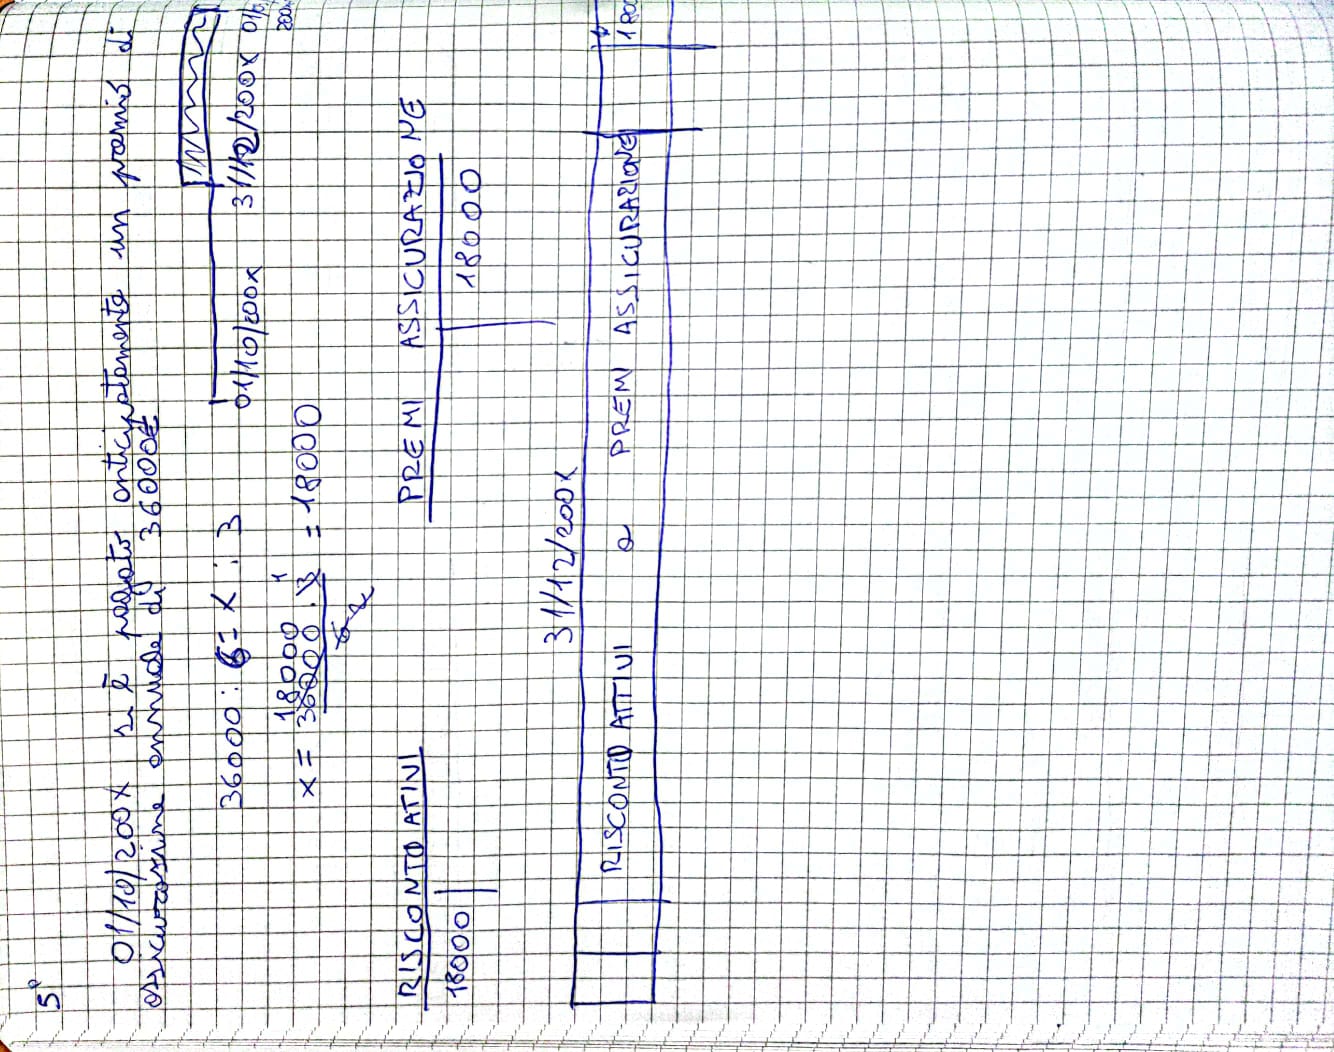 5°
01/10/200X si è pagato anticipatamente un premio di
assicurazione annuale di 36000€
36000 : 6 = X : 3
01/10/200X 31/12/200X 01/
200
18000 1
X = 36000 · 3 = 18000
6 2
RISCONTO ATIVI PREMI ASSICURAZIONE
18000 18000
31/12/200X
RISCONTO ATTIVI a PREM ASSICURAZIONE 1800